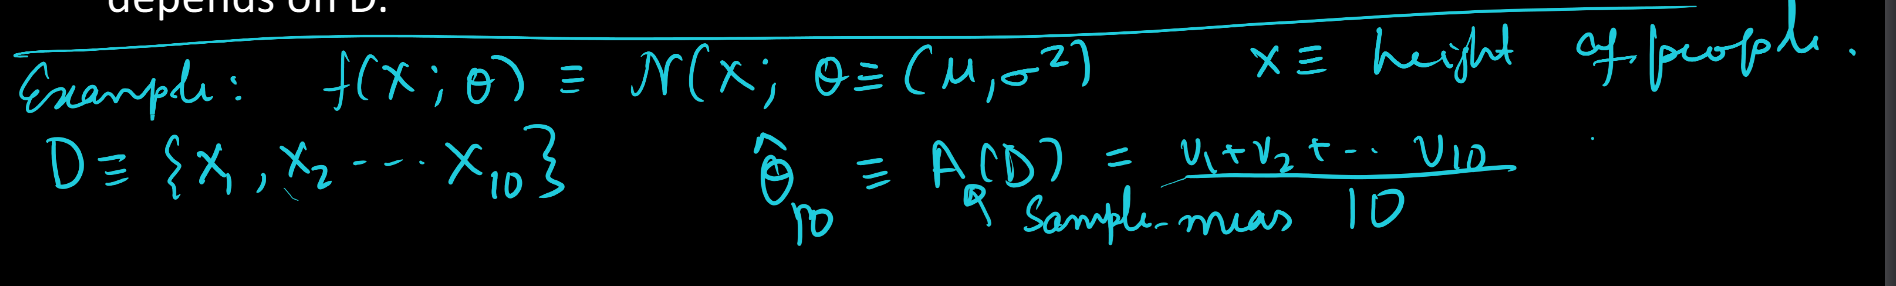 depends on D.
Example: f(x; θ) ≡ N(x; θ≡(μ,σ²) x ≡ height of people.
D ≡ {x₁, x₂ --- x₁₀} θ̂₁₀ ≡ A(D) = (v₁+v₂+-- v₁₀)/10
Sample-meas